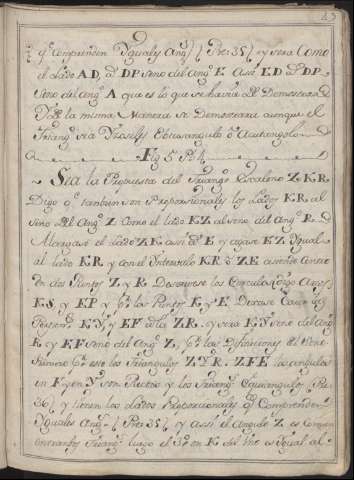 43
q.e Comprenden Yguales Ang.s ( Pre: 35 ) y sera Como
el Lado AD, al DP seno del Ang.o E. Assi ED al DP
Seno del Ang.o A que es lo que se havia de Demostrar
De la misma Manera se Demostrara aunque el
Triang.o sea Yzoseles Obtusangulo o Acutangolo
Fig 5 P.a 4
Sea la Propuesta del Triangulo Escaleno Z.K.R.
Digo q.e tambien son Proporsionales los Lados KR, al
seno del Ang.o Z Como el lado KZ al seno del Ang.o R
Alarguese el lado ZK assi a E y agase KZ Ygual
al lado KR y con el Intervalo KR o ZE asiendo Centro
en dos Puntos Z y R Descrivase los Circulos
KS, y EP y los Puntos K y E
KY y EF a la ZR, y sera KY seno del Ang.o
R y EF seno del Ang.o Z, las Difiniciones del
esto los triangulos ZYR. ZFE los angulos
en F y en Y son Rectos y los Triang.s Equiangulos ( Pre
36 ) y tienen los Lados Proporsionales q.e Comprenden
Yguales Ang.s ( Pre: 35 ) y assi el Angulo Z es Comun
Triang.s luego el 3.o en K del Uno es Ygual al